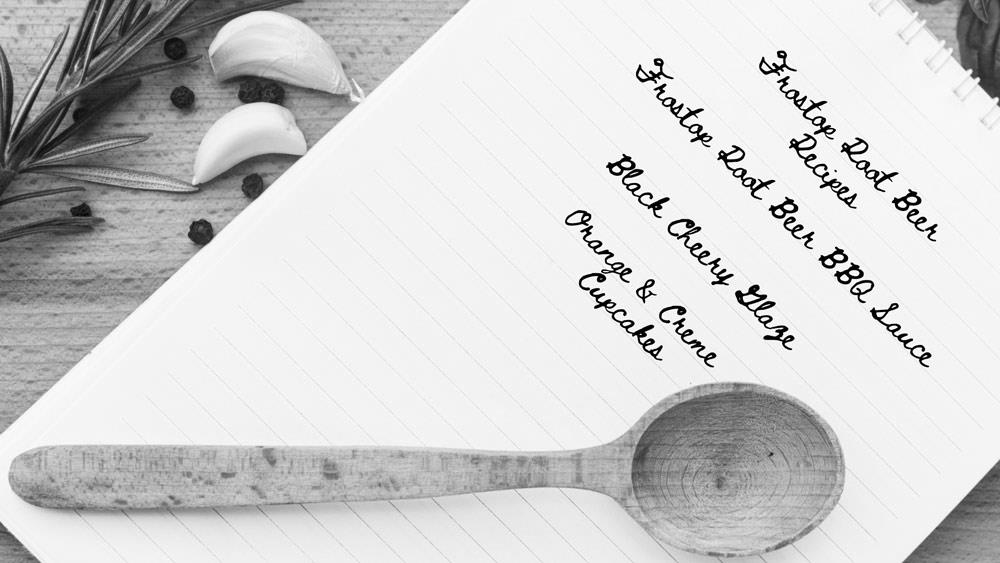 Frostop Root Beer
Recipes
Frostop Root Beer BBQ Sauce
Black Cheery Glaze
Orange & Creme
Cupcakes